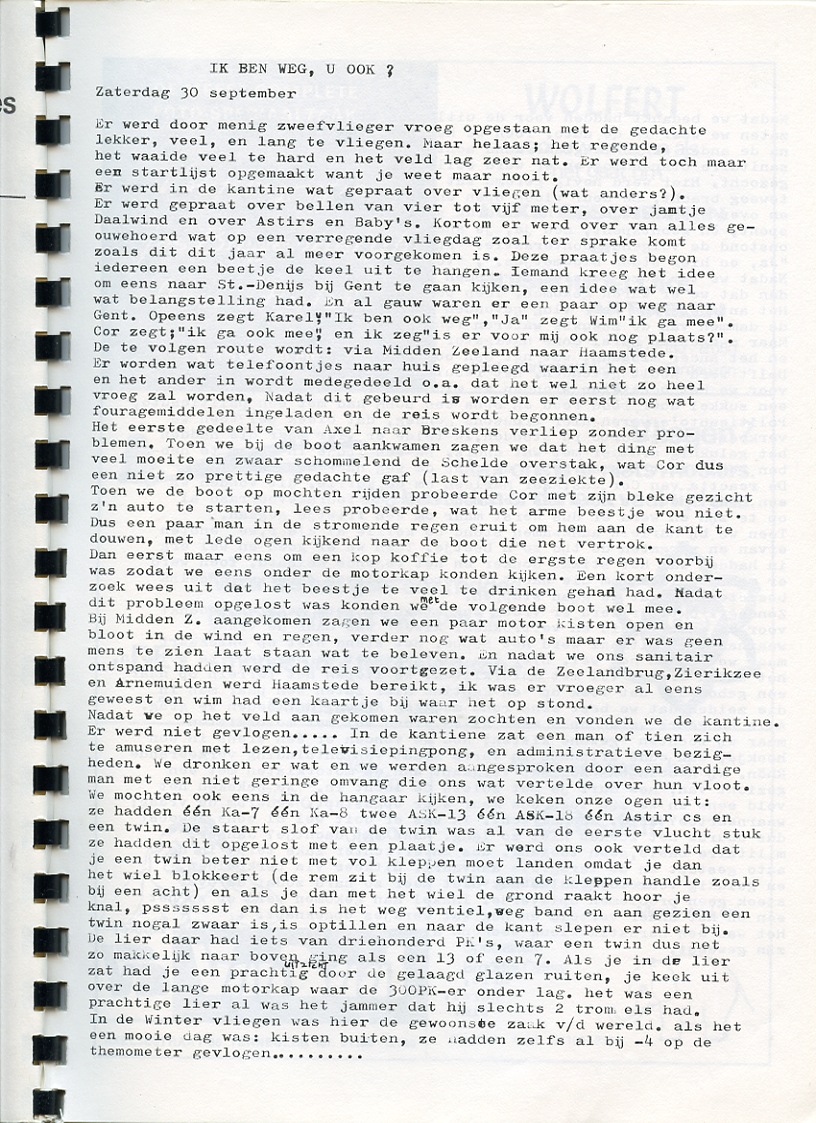 IK BEN WEG, U OOK ?
Zaterdag 30 september
Er werd door menig zweefvlieger vroeg opgestaan met de gedachte
lekker, veel, en lang te vliegen. Maar helaas; het regende,
het waaide veel te hard en het veld lag zeer nat. Er werd toch maar
een startlijst opgemaakt want je weet maar nooit.
Er werd in de kantine wat gepraat over vliegen (wat anders?).
Er werd gepraat over bellen van vier tot vijf meter, over jamtje
Daalwind en over Astirs en Baby's. Kortom er werd over van alles ge-
ouwehoerd wat op een verregende vliegdag zoal ter sprake komt
zoals dit dit jaar al meer voorgekomen is. Deze praatjes begon
iedereen een beetje de keel uit te hangen. Iemand kreeg het idee
om eens naar St.-Denijs bij Gent te gaan kijken, een idee wat wel
wat belangstelling had. En al gauw waren er een paar op weg naar
Gent. Opeens zegt Karel;"Ik ben ook weg","Ja" zegt Wim"ik ga mee".
Cor zegt;"ik ga ook mee" en ik zeg"is er voor mij ook nog plaats?".
De te volgen route wordt: via Midden Zeeland naar Haamstede.
Er worden wat telefoontjes naar huis gepleegd waarin het een
en het ander in wordt medegedeeld o.a. dat het wel niet zo heel
vroeg zal worden, Nadat dit gebeurd is worden er eerst nog wat
fouragemiddelen ingeladen en de reis wordt begonnen.
Het eerste gedeelte van Axel naar Breskens verliep zonder pro-
blemen. Toen we bij de boot aankwamen zagen we dat het ding met
veel moeite en zwaar schommelend de Schelde overstak, wat Cor dus
een niet zo prettige gedachte gaf (last van zeeziekte).
Toen we de boot op mochten rijden probeerde Cor met zijn bleke gezicht
z'n auto te starten, lees probeerde, wat het arme beestje wou niet.
Dus een paar man in de stromende regen eruit om hem aan de kant te
douwen, met lede ogen kijkend naar de boot die net vertrok.
Dan eerst maar eens om een kop koffie tot de ergste regen voorbij
was zodat we eens onder de motorkap konden kijken. Een kort onder-
zoek wees uit dat het beestje te veel te drinken gehad had. Nadat
dit probleem opgelost was konden we met de volgende boot wel mee.
Bij Midden Z. aangekomen zagen we een paar motor kisten open en
bloot in de wind en regen, verder nog wat auto's maar er was geen
mens te zien laat staan wat te beleven. En nadat we ons sanitair
ontspand hadden werd de reis voortgezet. Via de Zeelandbrug,Zierikzee
en Arnemuiden werd Haamstede bereikt, ik was er vroeger al eens
geweest en wim had een kaartje bij waar het op stond.
Nadat we op het veld aan gekomen waren zochten en vonden we de kantine.
Er werd niet gevlogen..... In de kantiene zat een man of tien zich
te amuseren met lezen,televisiepingpong, en administratieve bezig-
heden. We dronken er wat en we werden aangesproken door een aardige
man met een niet geringe omvang die ons wat vertelde over hun vloot.
We mochten ook eens in de hangaar kijken, we keken onze ogen uit:
ze hadden één Ka-7 één Ka-8 twee ASK-13 één ASK-18 één Astir cs en
een twin. De staart slof van de twin was al van de eerste vlucht stuk
ze hadden dit opgelost met een plaatje. Er werd ons ook verteld dat
je een twin beter niet met vol kleppen moet landen omdat je dan
het wiel blokkeert (de rem zit bij de twin aan de kleppen handle zoals
bij een acht) en als je dan met het wiel de grond raakt hoor je
knal, psssssst en dan is het weg ventiel,weg band en aan gezien een
twin nogal zwaar is,is optillen en naar de kant slepen er niet bij.
De lier daar had iets van driehonderd PK's, waar een twin dus net
zo makkelijk naar boven ging als een 13 of een 7. Als je in de lier
zat had je een prachtig uitzicht door de gelaagd glazen ruiten, je keek uit
over de lange motorkap waar de 300PK-er onder lag. het was een
prachtige lier al was het jammer dat hij slechts 2 trommels had.
In de Winter vliegen was hier de gewoonste zaak v/d wereld. als het
een mooie dag was: kisten buiten, ze hadden zelfs al bij -4 op de
themometer gevlogen..........
es
WOLFERT